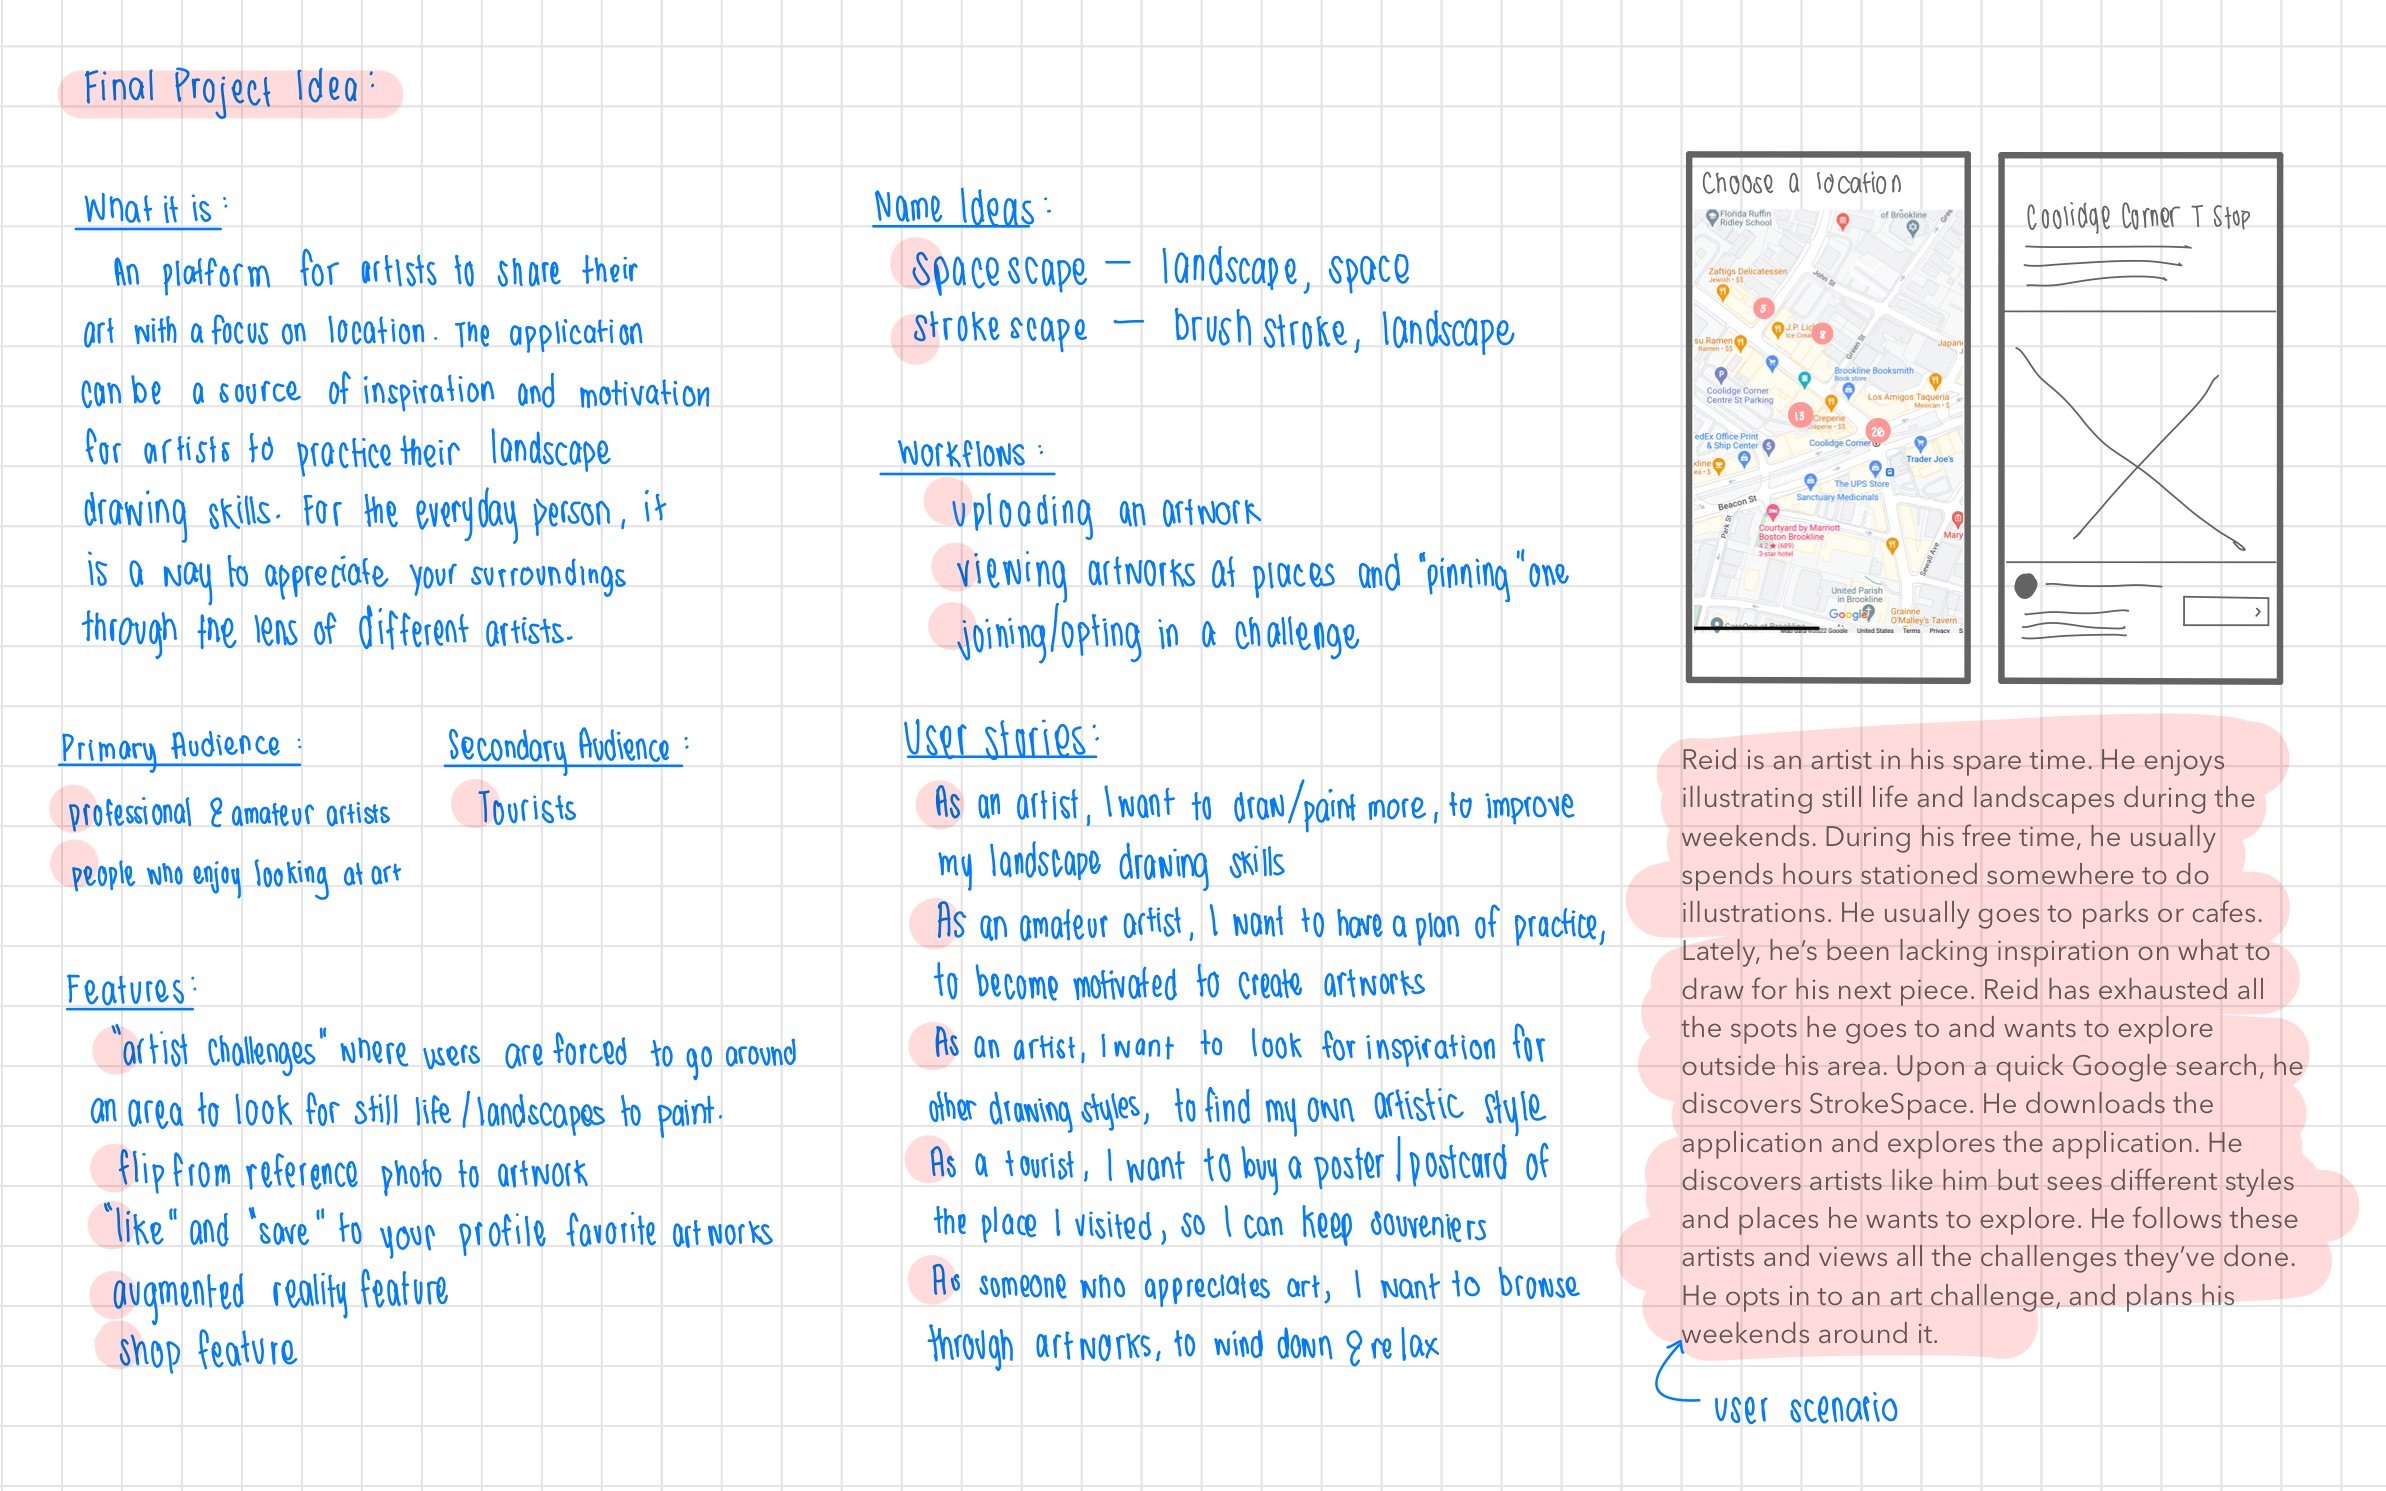 Final Project Idea:
What it is:
An platform for artists to share their
art with a focus on location. The application
can be a source of inspiration and motivation
for artists to practice their landscape
drawing skills. For the everyday person, it
is a way to appreciate your surroundings
through the lens of different artists.
Primary Audience:
professional & amateur artists
people who enjoy looking at art
Secondary Audience:
Tourists
Features:
"artist challenges" where users are forced to go around
an area to look for still life/landscapes to paint.
flip from reference photo to artwork
"like" and "save" to your profile favorite artworks
augmented reality feature
shop feature
Name Ideas:
Spacescape — landscape, space
Strokescape — brush stroke, landscape
Workflows:
uploading an artwork
viewing artworks at places and "pinning" one
joining/opting in a challenge
User stories:
As an artist, I want to draw/paint more, to improve
my landscape drawing skills
As an amateur artist, I want to have a plan of practice,
to become motivated to create artworks
As an artist, I want to look for inspiration for
other drawing styles, to find my own artistic style
As a tourist, I want to buy a poster/postcard of
the place I visited, so I can keep souveniers
As someone who appreciates art, I want to browse
through artworks, to wind down & relax
Choose a location
Florida Ruffin
Ridley School
of Brookline
Zaftigs Delicatessen
Jewish • $$
John St
5
8
J.P. Lic
Ice Crea
su Ramen
Ramen • $$
Green St
Japane
Brookline Booksmith
Book store
Coolidge Corner
Centre St Parking
Los Amigos Taqueria
Mexican • $
13
Creperie
Creperie • $$
26
edEx Office Print
& Ship Center
Coolidge Corner
Trader Joe's
kline
ea • $
The UPS Store
Sanctuary Medicinals
Beacon St
Park St
Courtyard by Marriott
Boston Brookline
4.2 ★ (689)
3-star hotel
Mary
Sewall Ave
United Parish
in Brookline
Google
Grainne
O'Malley's Tavern
Map data ©2022 Google United States Terms Privacy S
Coolidge Corner T Stop
Reid is an artist in his spare time. He enjoys
illustrating still life and landscapes during the
weekends. During his free time, he usually
spends hours stationed somewhere to do
illustrations. He usually goes to parks or cafes.
Lately, he’s been lacking inspiration on what to
draw for his next piece. Reid has exhausted all
the spots he goes to and wants to explore
outside his area. Upon a quick Google search, he
discovers StrokeSpace. He downloads the
application and explores the application. He
discovers artists like him but sees different styles
and places he wants to explore. He follows these
artists and views all the challenges they’ve done.
He opts in to an art challenge, and plans his
weekends around it.
user scenario